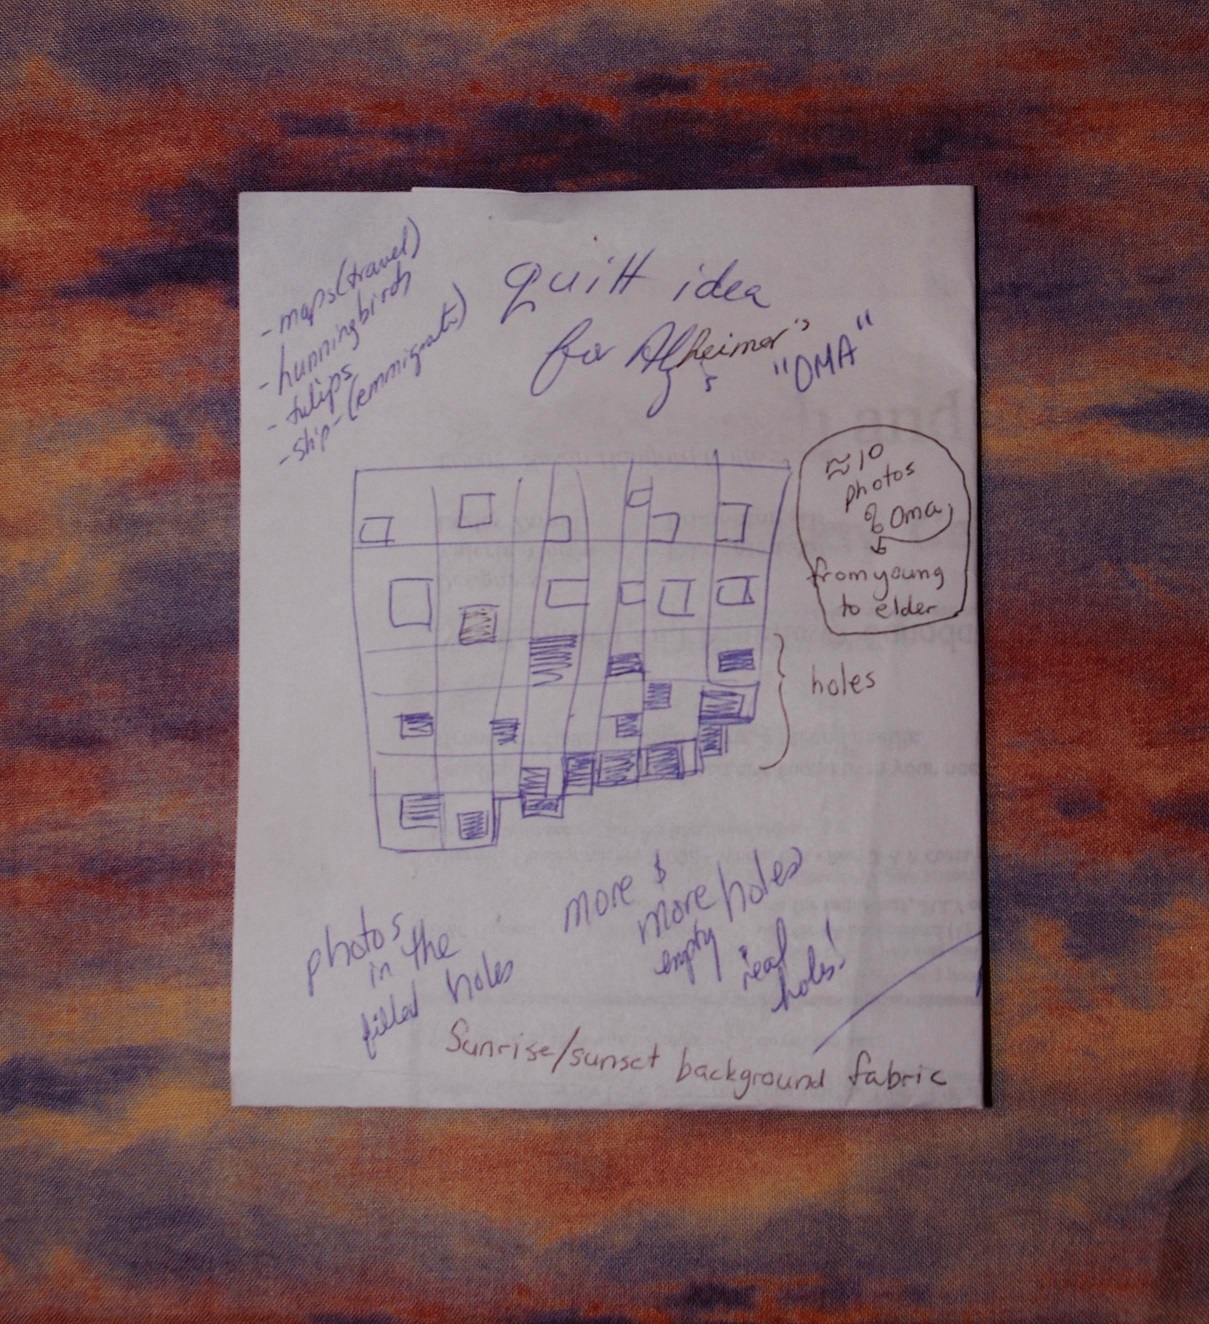 - maps (travel)
- hunningbirds
- tulips
- ship - (emmigrate)
quilt idea
for Alzheimer's
"OMA"
≈ 10
photos
of Oma,
from young
to elder
holes
photos
in the
filled holes
more &
more holes
empty
real
holes!
Sunrise/sunset background fabric